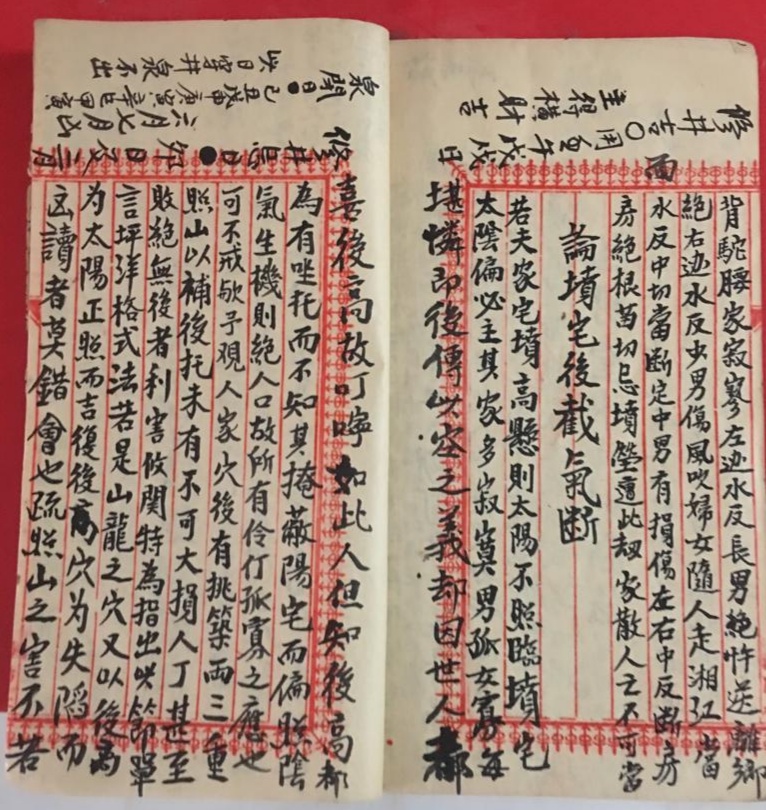 修井吉〇用画午戊戌日
主得横財吉
雨
背駝腰家寂寥左边水反長男絶忤逆離鄉
絶右边水反少男傷風吹婦女隨人走湘江當
水反中切當断定中男有損傷左右中反断房
房絶根苗切忌墳塋遭此刼家散人亡不可當
論墳宅後截氣断
若夫家宅墳高懸則太陽不照臨墳宅
太陰偏必主其家多寂寞男孤女寡每
堪憐即後傳此空之義却因世人都
喜後高故叮嚀如此人但知後高都
為有坐托而不知其掩蔽陽宅而偏照陰
氣生機則絶人口故所有伶仃孤寡之應也
可不戒歟予观人家穴後有挑築両三重
照山以補後托未有不可大損人丁甚至
敗絶無後者利害攸関特為指出此節單
言坪洋格式法若是山龍之穴又以後高
为太陽正照而吉復後高穴为失陷而
凶讀者莫錯會也疏照山之害不若
修井忌日
卯日又二月
六月七月戌
己丑戊申庚寅辛日甲寅
泉閉日
此日穿井泉不出